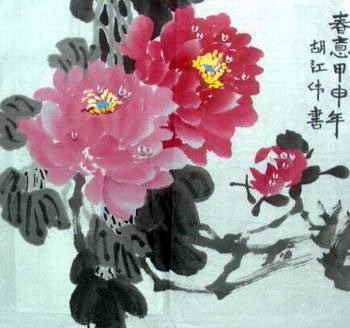 春意甲申年
胡江伟書